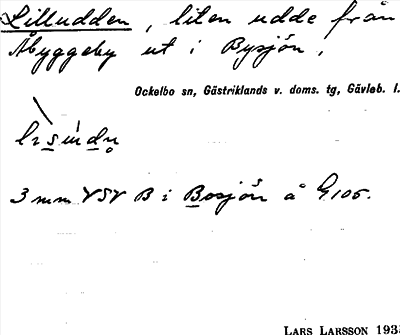 Lilludden, liten udde från
Åbyggeby ut i Bysjön,
Ockelbo sn, Gästriklands v. doms. tg, Gävleb. l.
3 mm VSV B i Bosjön å G105.
LARS LARSSON 193